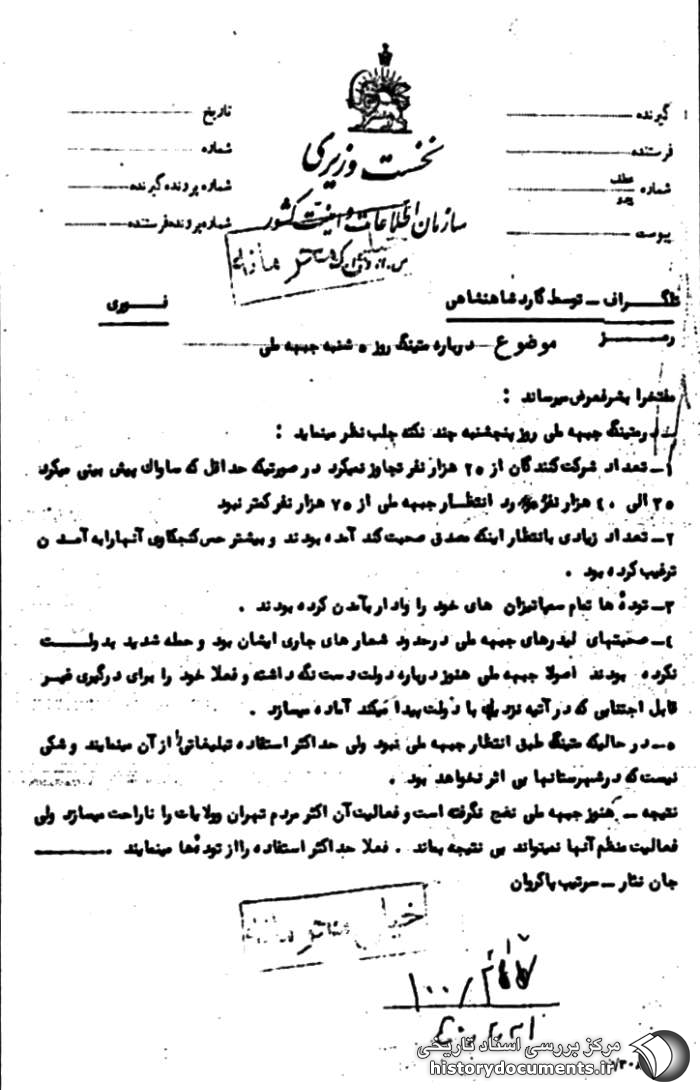 گیرنده
تاریخ
فرستنده
شماره
شماره عطف پیرو
شماره پرونده گیرنده
پیوست
شماره پرونده فرستنده
نخست وزیری
سازمان اطلاعات و امنیت کشور
تلگراف ـ توسط گارد شاهنشاهی
فوری
رمز
موضوع ـ درباره متینگ روز ۵ شنبه جبهه ملی
مفتخرا بشرفعرض میرساند :
درمتینگ جبهه ملی روز پنجشنبه چند نکته جلب نظر مینماید :
۱ـ تعداد شرکت کنندگان از ۲۵ هزار نفر تجاوز نمیکرد در صورتیکه حداقل که ساواک پیش بینی میکرد
۳۵ الی ۴۰ هزار نفر بود انتظار جبهه ملی از ۷۵ هزار نفر کمتر نبود
۲ـ تعداد زیادی بانتظار اینکه مصدق صحبت کند آمده بودند و بیشتر حس کنجکاوی آنها را به آمدن
ترغیب کرده بود .
۳ـ توده ها تمام سمپاتیزان های خود را وادار بآمدن کرده بودند .
۴ـ صحبتهای لیدرهای جبهه ملی درحدود شعار های جاری ایشان بود و حمله شدید بدولت
نکرده بودند اصولا جبهه ملی هنوز درباره دولت دست نگه داشته و فعلا خود را برای درگیری غیر
قابل اجتنابی که در آتیه نزدیک با دولت پیدا میکند آماده میسازد .
۵ـ در حالیکه متینگ طبق انتظار جبهه ملی نبود ولی حداکثر استفاده تبلیغاتی را از آن مینمایند و شکی
نیست که در شهرستانها بی اثر نخواهد بود .
نتیجه ـ هنوز جبهه ملی نضج نگرفته است و فعالیت آن اکثر مردم تهران وولایات را ناراحت میسازد ولی
فعالیت منظم آنها نمیتواند بی نتیجه بماند . فعلا حداکثر استفاده را از توده ها مینمایند .
جان نثار ـ سرتیپ پاکروان
خیلی محرمانه
۱۰۰/
مرکز بررسی اسناد تاریخی
historydocuments.ir